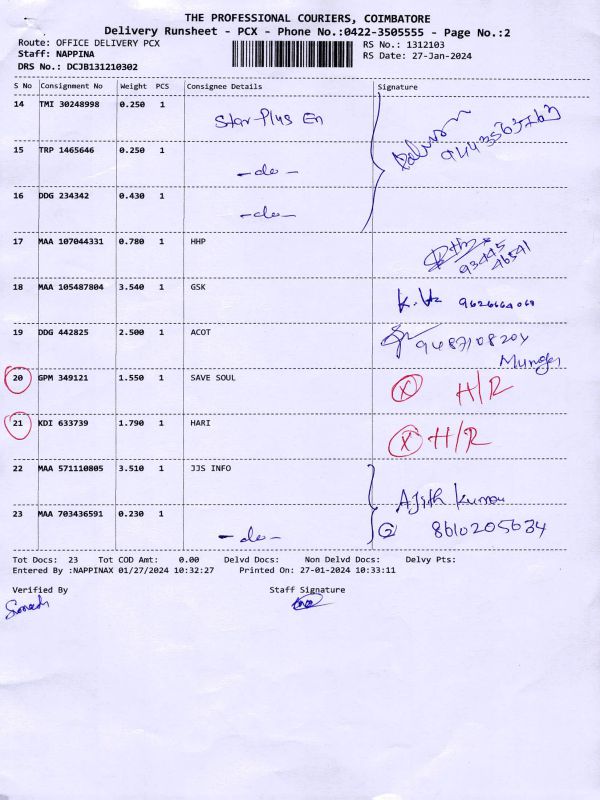 THE PROFESSIONAL COURIERS, COIMBATORE
Delivery Runsheet - PCX - Phone No.:0422-3505555 - Page No.:2
Route: OFFICE DELIVERY PCX RS No.: 1312103
Staff: NAPPINA RS Date: 27-Jan-2024
DRS No.: DCJB131210302
S No Consignment No Weight PCS Consignee Details Signature
14 TMI 30248998 0.250 1 Star Plus En
15 TRP 1465646 0.250 1 - do -
16 DDG 234342 0.430 1 - do -
17 MAA 107044331 0.780 1 HHP 93445
46541
18 MAA 105487804 3.540 1 GSK
19 DDG 442825 2.500 1 ACOT
20 GPM 349121 1.550 1 SAVE SOUL X H/R
21 KDI 633739 1.790 1 HARI X H/R
22 MAA 571110805 3.510 1 JJS INFO Ajith Kumar
23 MAA 703436591 0.230 1 - do - 2 8610205634
Tot Docs: 23 Tot COD Amt: 0.00 Delvd Docs: Non Delvd Docs: Delvy Pts:
Entered By :NAPPINAX 01/27/2024 10:32:27 Printed On: 27-01-2024 10:33:11
Verified By Staff Signature